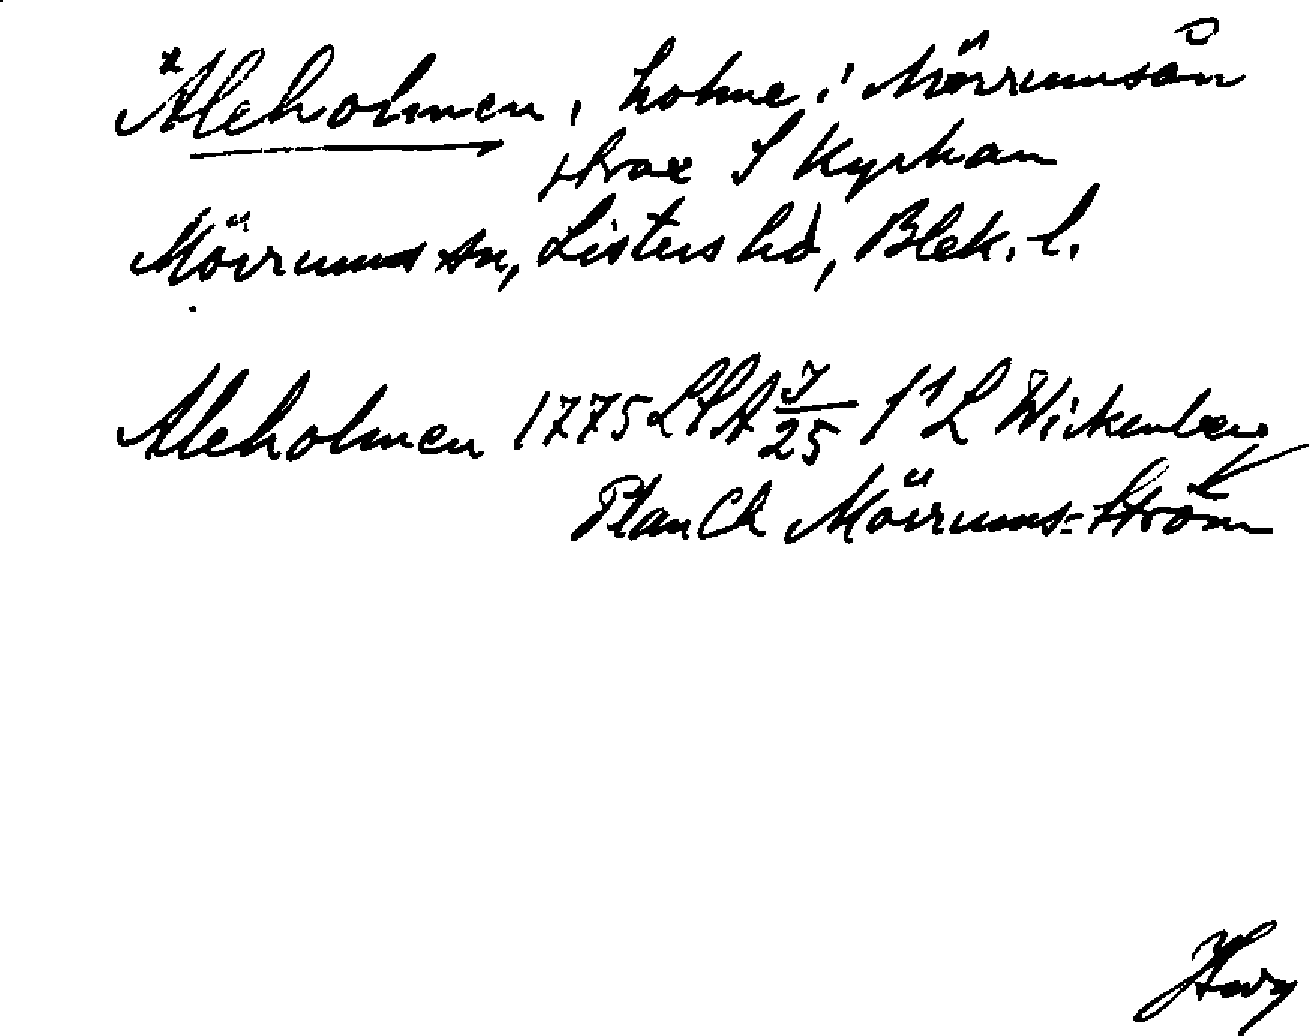 *Aleholmen, holme i Mörrumsån
strax S kyrkan
Mörrums sn, Listers hd, Blek. l.
Aleholmen 1775 LSA I/25 1¹ L Wickenberg
Plan Ch Mörrums-ström